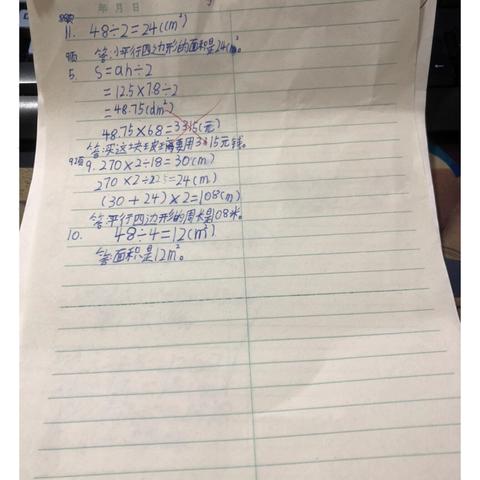 年 月 日
11. 48÷2=24(cm²)
答:小平行四边形的面积是24cm²。
5. S=ah÷2
=12.5×7.8÷2
=48.75(dm²)
48.75×68=3315(元)
答:买这块玻璃要用3315元钱。
9. 270×2÷18=30(m)
270×2÷22.5=24(m)
(30+24)×2=108(m)
答:平行四边形的周长是108米。
10. 48÷4=12(m²)
答:面积是12m²。